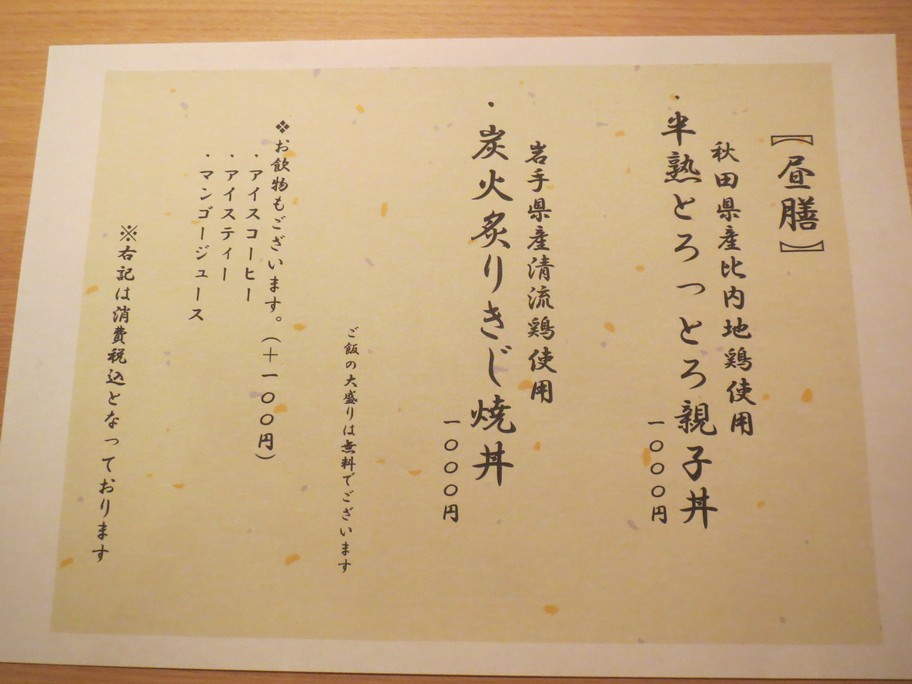 【昼膳】
秋田県産比内地鶏使用
・半熟とろっとろ親子丼
一〇〇〇円
岩手県産清流鶏使用
・炭火炙りきじ焼丼
一〇〇〇円
ご飯の大盛りは無料でございます
❖お飲物もございます。（＋一〇〇円）
・アイスコーヒー
・アイスティー
・マンゴージュース
※右記は消費税込となっております